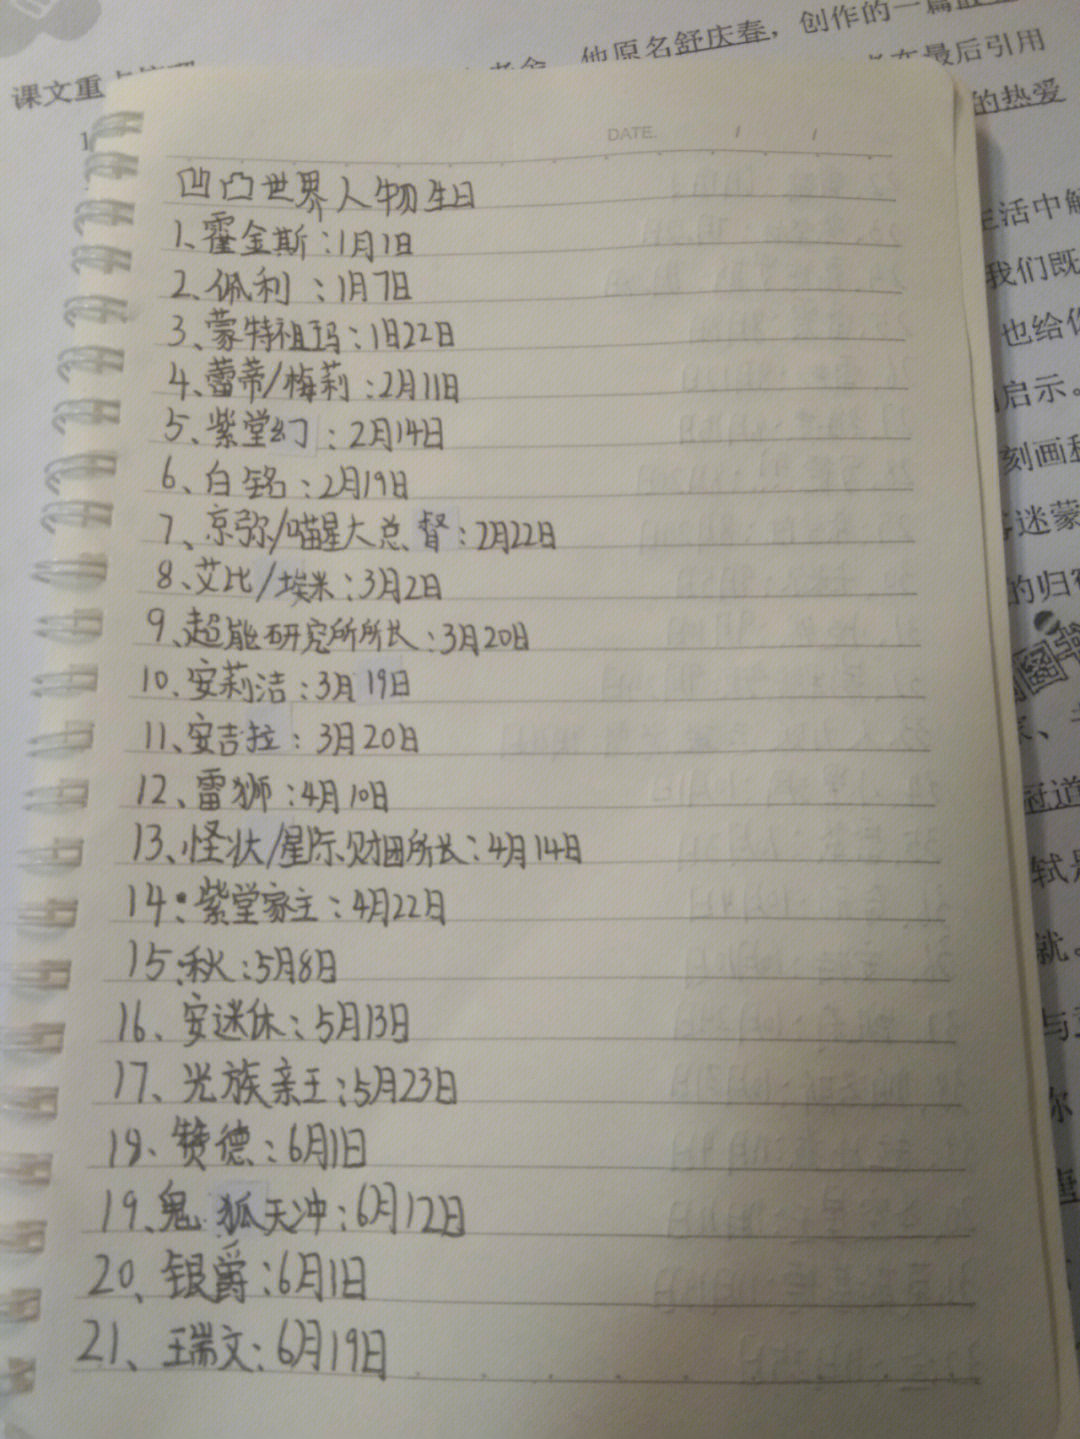 他原名舒庆春，创作的一篇
课文重
在最后引用
的热爱
1
DATE. / /
凹凸世界人物生日
1、霍金斯：1月1日
2、佩利：1月7日
3、蒙特祖玛：1月22日
4、蕾蒂/梅莉：2月11日
5、紫堂幻：2月14日
6、白铭：2月19日
7、京弥/喵星大总督：2月22日
8、艾比/埃米：3月2日
9、超能研究所所长：3月20日
10、安莉洁：3月19日
11、安吉拉：3月20日
12、雷狮：4月10日
13、怪状/星际财团所长：4月14日
14：紫堂家主：4月22日
15、秋：5月8日
16、安迷休：5月13日
17、光族亲王：5月23日
18、赞德：6月1日
19、鬼狐天冲：6月12日
20、银爵：6月1日
21、瑞文：6月19日
生活中解
我们既
也给你
启示。
刻画和
迷蒙
的归宿
图书
冠道
轼是
就。
与
你